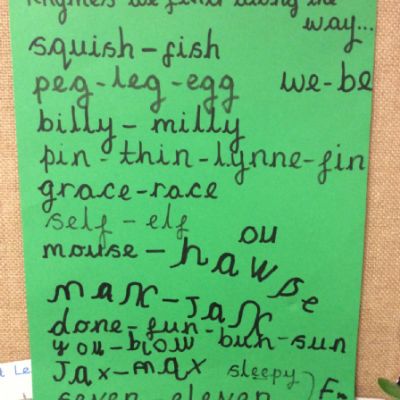 Rhymes we find along the
way...
squish-fish
peg-leg-egg we-be
billy-milly
pin-thin-lynne-fin
grace-race
self-elf
mouse-hawse
ou
max-Jax
done-fun-bun-sun
you-blow
Jax-max sleepy
seven-eleven